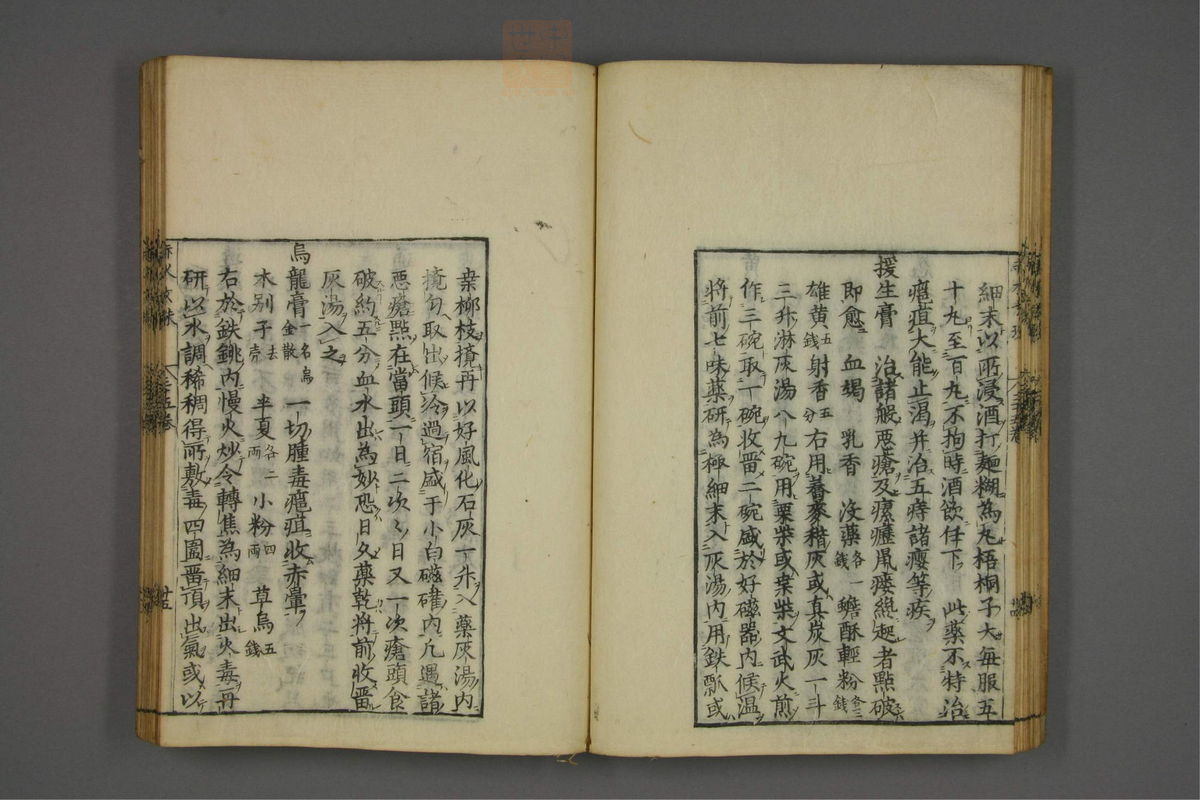 細末以所浸酒打麺糊為丸梧桐子大每服五
十九至百九不拘時酒飲任下　此藥不特治
癰疽大能止渴并治五痔諸癭等疾
援生膏　治諸般悪瘡及瘰癧鼠瘻纔起者點破
即愈　血竭　乳香　没藥各一錢　蟾酥輕粉各三錢
雄黄五錢射香五分右用蕎麥稭灰或真炭灰一斗
三升淋灰湯八九碗用栗柴或桒柴文武火煎
作三碗取一碗收畱二碗盛於好磁器内候温
將前七味藥研為極細末入灰湯内用鉄瓢或
桒栁枝攪再以好風化石灰一升入藥灰湯内
攪匀取出候冷過宿盛于小白磁礶内凢遇諸
悪瘡點在當頭一日二次〻日又一次瘡頭食
破約五分血水出為妙恐日久藥乾将前收畱
灰湯入之
烏龍膏一名烏金散　一切腫毒癰疽收赤暈
木别子去壳　半夏各二兩　小粉四兩　草烏五錢
右於鉄銚内慢火炒令轉焦為細末出火毒再
研以水調稀稠得所敷毒四圍畱頂出氣或以